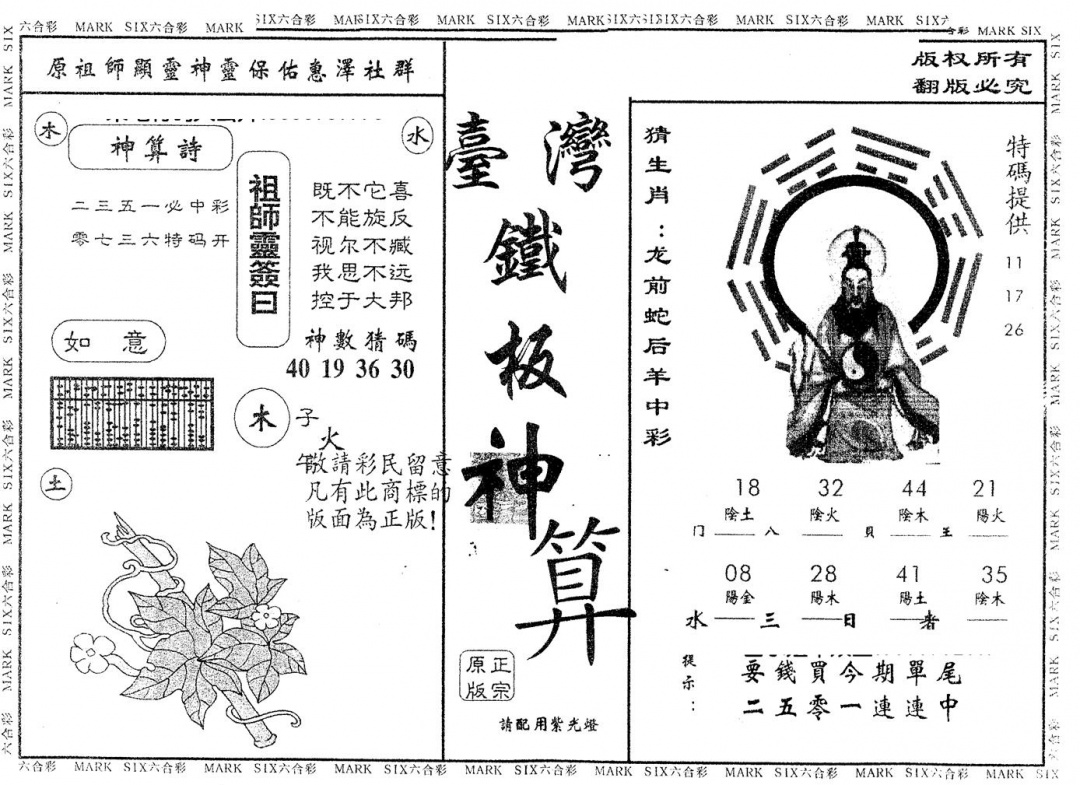 六合彩 MARK SIX六合彩 MARK SIX六合彩 MARK SIX六合彩 MARK SIX六合彩 MARK SIX六合彩 MARK SIX六合彩 MARK SIX
原祖師顯靈神靈保佑惠澤社群
版权所有
翻版必究
木
神算詩
水
二三五一必中彩
零七三六特码开
祖師靈簽曰
既不它喜
不能旋反
视尔不臧
我思不远
控于大邦
神數猜碼
40 19 36 30
如意
木
子
火
午
敬請彩民留意
凡有此商標的
版面為正版!
土
臺灣
鐵
板
神
算
正宗
原版
請配用紫光燈
猜生肖:龙前蛇后羊中彩
特碼提供
11
17
26
18 32 44 21
陰土 陰火 陰木 陽火
门 八 貝 王
08 28 41 35
陽金 陽木 陽土 陰木
水 三 日 者
提示:
要錢買今期單尾
二五零一連連中
六合彩 MARK SIX六合彩 MARK SIX六合彩 MARK SIX六合彩 MARK SIX六合彩 MARK SIX六合彩 MARK SIX六合彩 MARK SIX六合彩 MARK SIX